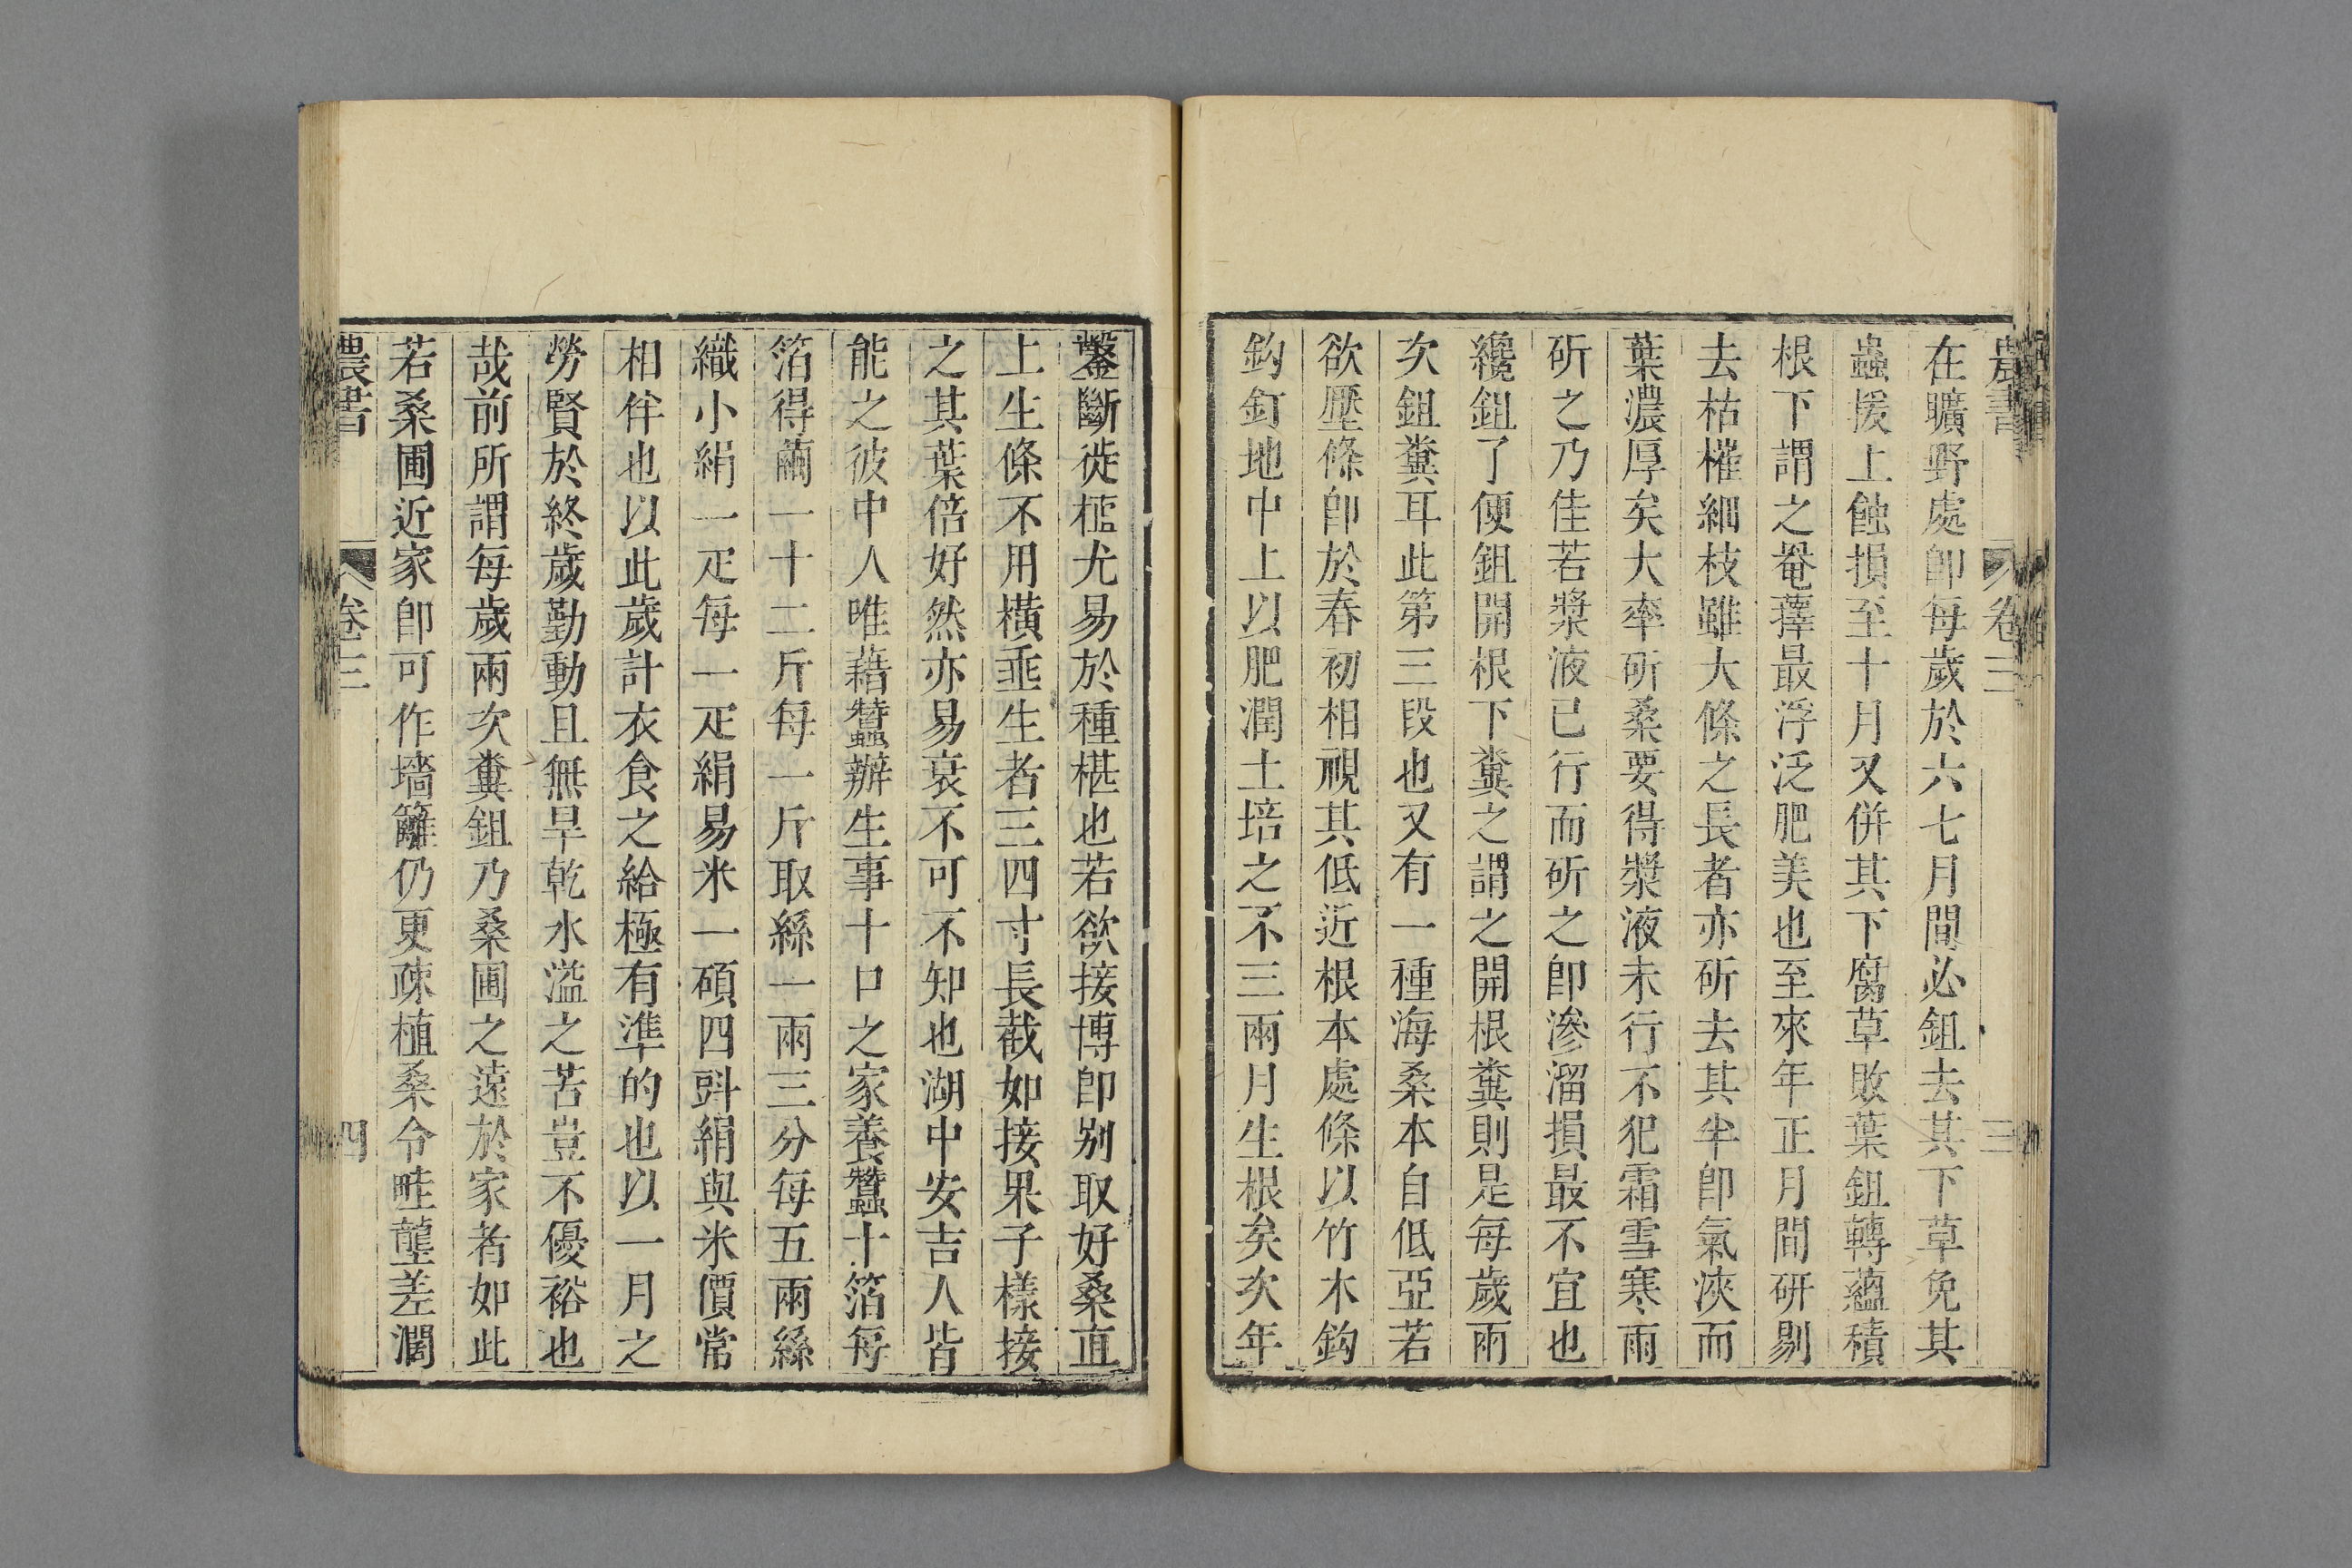 農書 卷三 三
在曠野處卽每歲於六七月間必鉏去其下草免其
蟲援上蝕損至十月又併其下腐草敗葉鉏轉蘊積
根下謂之罨蘀最浮泛肥美也至來年正月間研剔
去枯摧細枝雖大條之長者亦斫去其半卽氣浹而
葉濃厚矣大率斫桑要得漿液未行不犯霜雪寒雨
斫之乃佳若漿液已行而斫之卽滲溜損最不宜也
纔鉏了便鉏開根下糞之謂之開根糞則是每歲兩
次鉏糞耳此第三段也又有一種海桑本自低亞若
欲壓條卽於春初相視其低近根本處條以竹木鈎
鈎釘地中上以肥潤土培之不三兩月生根矣次年
鑿斷徙植尤易於種椹也若欲接博卽别取好桑直
上生條不用橫垂生者三四寸長截如接果子樣接
之其葉倍好然亦易衰不可不知也湖中安吉人皆
能之彼中人唯藉蠶辦生事十口之家養蠶十箔每
箔得繭一十二斤每一斤取絲一兩三分每五兩絲
織小絹一疋每一疋絹易米一碩四㪷絹與米價常
相侔也以此歲計衣食之給極有準的也以一月之
勞賢於終歲勤動且無旱乾水溢之苦豈不優裕也
哉前所謂每歲兩次糞鉏乃桑圃之遠於家者如此
若桑圃近家卽可作墻籬仍更疎植桑令畦壟差濶
農書 卷三 四